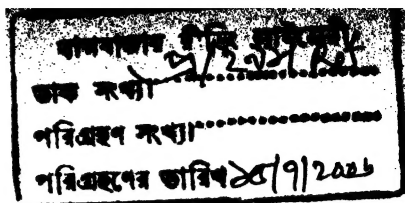 বাগবাজার রীডিং লাইব্রেরী
ডাক সংখ্যা
পরিগ্রহণ সংখ্যা
পরিগ্রহণের তারিখ ১৫/৭/২০০৬